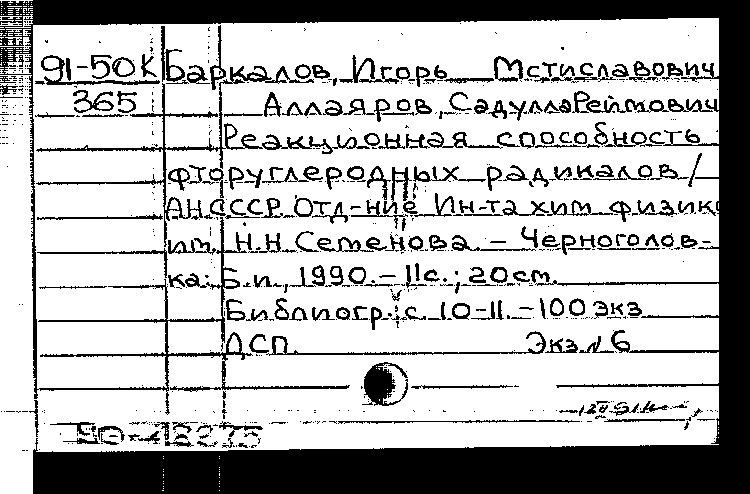 91-50К Баркалов, Игорь Мстиславович
365 Аллаяров, Садулла Реймович
Реакционная способность
фторуглеродных радикалов /
АН СССР. Отд-ние Ин-та хим физик
им. Н.Н Семенова. – Черноголов-
ка: Б.и., 1990. – 11с.; 20см.
Библиогр.: с. 10-11. – 100 экз
ДСП. Экз. № 6